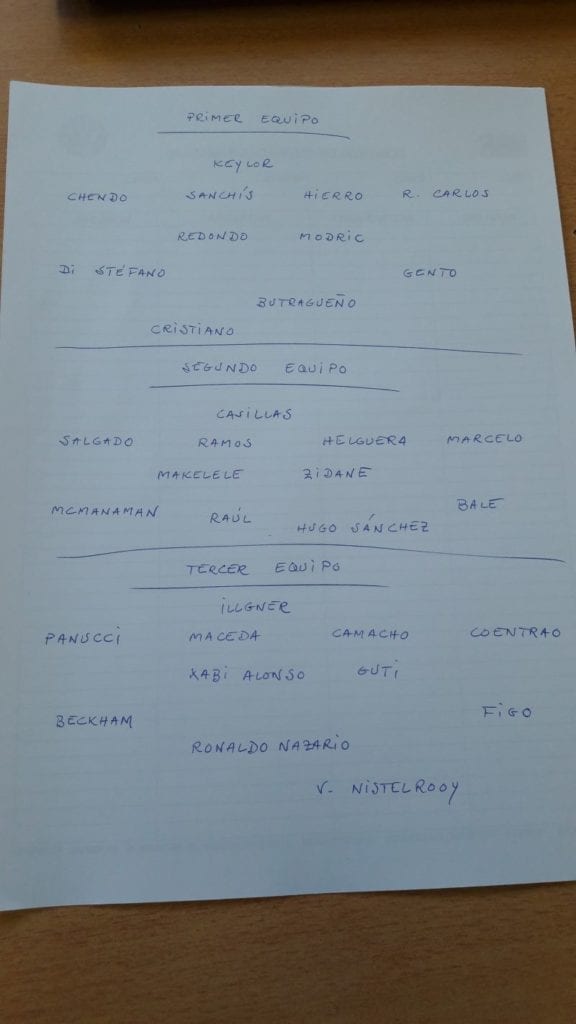 PRIMER EQUIPO
KEYLOR
CHENDO SANCHÍS HIERRO R. CARLOS
REDONDO MODRIC
DI STÉFANO GENTO
BUTRAGUEÑO
CRISTIANO
SEGUNDO EQUIPO
CASILLAS
SALGADO RAMOS HELGUERA MARCELO
MAKELELE ZIDANE
MCMANAMAN RAÚL HUGO SÁNCHEZ BALE
TERCER EQUIPO
ILLGNER
PANUCCI MACEDA CAMACHO COENTRAO
XABI ALONSO GUTI
BECKHAM FIGO
RONALDO NAZARIO
V. NISTELROOY